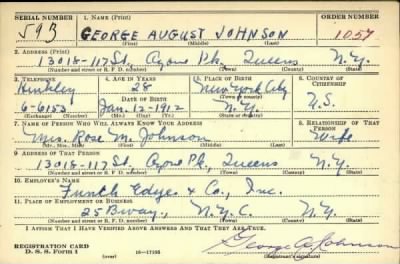 SERIAL NUMBER 1. NAME (Print) ORDER NUMBER
593 GEORGE AUGUST JOHNSON 1057
(First) (Middle) (Last)
2. ADDRESS (Print)
13018-117 St, Ozone Pk, Queens N.Y.
(Number and street or R. F. D. number) (Town) (County) (State)
3. TELEPHONE 4. AGE IN YEARS 5. PLACE OF BIRTH 6. COUNTRY OF CITIZENSHIP
28 New York City
DATE OF BIRTH (Town or county)
6-6153 Jan. 12-1912 N.Y. U.S.
(Exchange) (Number) (Mo.) (Day) (Yr.) (State or country)
7. NAME OF PERSON WHO WILL ALWAYS KNOW YOUR ADDRESS 8. RELATIONSHIP OF THAT PERSON
Mrs. Rose M. Johnson Wife
(Mr., Mrs., Miss) (First) (Middle) (Last)
9. ADDRESS OF THAT PERSON
13018-117 St, Ozone Pk, Queens N.Y.
(Number and street or R. F. D. number) (Town) (County) (State)
10. EMPLOYER'S NAME
Edye & Co., Inc.
11. PLACE OF EMPLOYMENT OR BUSINESS
25 Bway, N.Y.C. N.Y.
(Number and street or R. F. D. number) (Town) (County) (State)
I AFFIRM THAT I HAVE VERIFIED ABOVE ANSWERS AND THAT THEY ARE TRUE.
REGISTRATION CARD
D. S. S. Form 1 (over) 16-17105 George A. Johnson
(Registrant's signature)